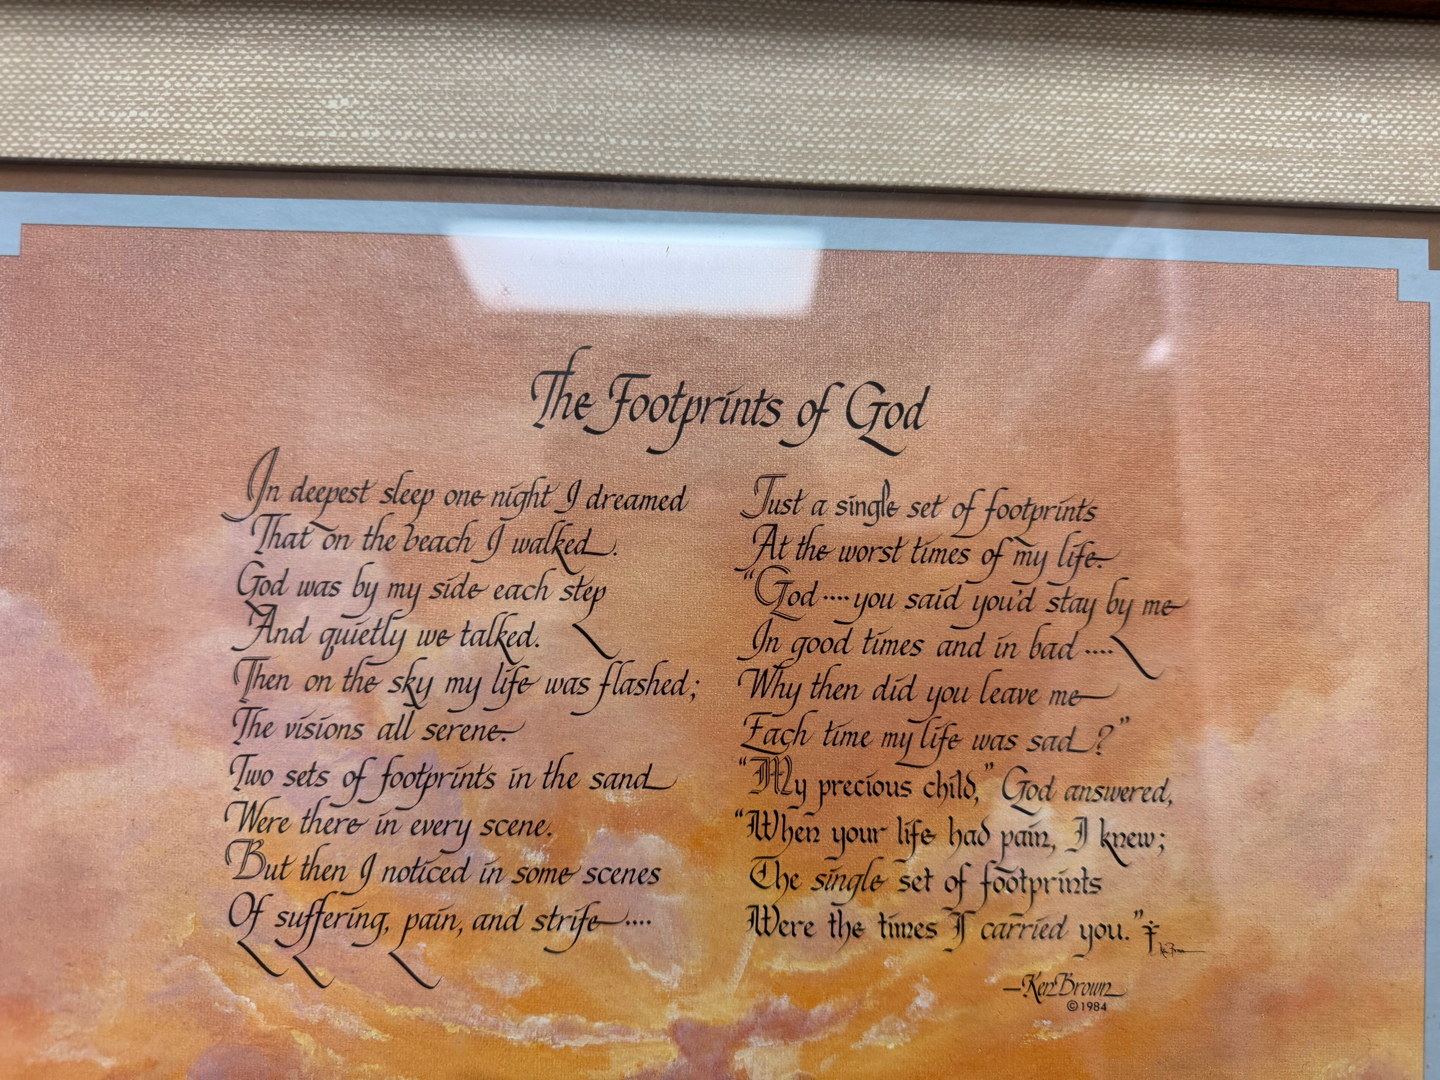 The Footprints of God
In deepest sleep one night I dreamed
That on the beach I walked.
God was by my side each step
And quietly we talked.
Then on the sky my life was flashed;
The visions all serene.
Two sets of footprints in the sand
Were there in every scene.
But then I noticed in some scenes
Of suffering, pain, and strife....
Just a single set of footprints
At the worst times of my life.
"God....you said you'd stay by me
In good times and in bad....
Why then did you leave me
Each time my life was sad?"
"My precious child," God answered,
"When your life had pain, I knew;
The single set of footprints
Were the times I carried you."
—Ken Brown
©1984